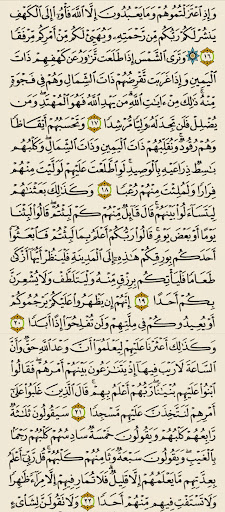 وَإِذِ ٱعْتَزَلْتُمُوهُمْ وَمَا يَعْبُدُونَ إِلَّا ٱللَّهَ فَأْوُۥٓا۟ إِلَى ٱلْكَهْفِ
يَنشُرْ لَكُمْ رَبُّكُم مِّن رَّحْمَتِهِۦ وَيُهَيِّئْ لَكُم مِّنْ أَمْرِكُم مِّرْفَقًا
١٦ ۞ وَتَرَى ٱلشَّمْسَ إِذَا طَلَعَت تَّزَٰوَرُ عَن كَهْفِهِمْ ذَاتَ
ٱلْيَمِينِ وَإِذَا غَرَبَت تَّقْرِضُهُمْ ذَاتَ ٱلشِّمَالِ وَهُمْ فِى فَجْوَةٍ
مِّنْهُ ۚ ذَٰلِكَ مِنْ ءَايَٰتِ ٱللَّهِ ۗ مَن يَهْدِ ٱللَّهُ فَهُوَ ٱلْمُهْتَدِ ۖ وَمَن
يُضْلِلْ فَلَن تَجِدَ لَهُۥ وَلِيًّا مُّرْشِدًا ١٧ وَتَحْسَبُهُمْ أَيْقَاظًا
وَهُمْ رُقُودٌ ۚ وَنُقَلِّبُهُمْ ذَاتَ ٱلْيَمِينِ وَذَاتَ ٱلشِّمَالِ ۖ وَكَلْبُهُم
بَٰسِطٌ ذِرَاعَيْهِ بِٱلْوَصِيدِ ۚ لَوِ ٱطَّلَعْتَ عَلَيْهِمْ لَوَلَّيْتَ مِنْهُمْ
فِرَارًا وَلَمُلِئْتَ مِنْهُمْ رُعْبًا ١٨ وَكَذَٰلِكَ بَعَثْنَٰهُمْ
لِيَتَسَآءَلُوا۟ بَيْنَهُمْ ۚ قَالَ قَآئِلٌ مِّنْهُمْ كَمْ لَبِثْتُمْ ۖ قَالُوا۟ لَبِثْنَا
يَوْمًا أَوْ بَعْضَ يَوْمٍ ۚ قَالُوا۟ رَبُّكُمْ أَعْلَمُ بِمَا لَبِثْتُمْ فَٱبْعَثُوٓا۟
أَحَدَكُم بِوَرِقِكُمْ هَٰذِهِۦٓ إِلَى ٱلْمَدِينَةِ فَلْيَنظُرْ أَيُّهَآ أَزْكَىٰ
طَعَامًا فَلْيَأْتِكُم بِرِزْقٍ مِّنْهُ وَلْيَتَلَطَّفْ وَلَا يُشْعِرَنَّ
بِكُمْ أَحَدًا ١٩ إِنَّهُمْ إِن يَظْهَرُوا۟ عَلَيْكُمْ يَرْجُمُوكُمْ
أَوْ يُعِيدُوكُمْ فِى مِلَّتِهِمْ وَلَن تُفْلِحُوٓا۟ إِذًا أَبَدًا ٢٠
وَكَذَٰلِكَ أَعْثَرْنَا عَلَيْهِمْ لِيَعْلَمُوٓا۟ أَنَّ وَعْدَ ٱللَّهِ حَقٌّ وَأَنَّ
ٱلسَّاعَةَ لَا رَيْبَ فِيهَآ إِذْ يَتَنَٰزَعُونَ بَيْنَهُمْ أَمْرَهُمْ ۖ فَقَالُوا۟
ٱبْنُوا۟ عَلَيْهِم بُنْيَٰنًا ۖ رَّبُّهُمْ أَعْلَمُ بِهِمْ ۚ قَالَ ٱلَّذِينَ غَلَبُوا۟ عَلَىٰٓ
أَمْرِهِمْ لَنَتَّخِذَنَّ عَلَيْهِم مَّسْجِدًا ٢١ سَيَقُولُونَ ثَلَٰثَةٌ
رَّابِعُهُمْ كَلْبُهُمْ وَيَقُولُونَ خَمْسَةٌ سَادِسُهُمْ كَلْبُهُمْ رَجْمًۢا
بِٱلْغَيْبِ ۖ وَيَقُولُونَ سَبْعَةٌ وَثَامِنُهُمْ كَلْبُهُمْ ۚ قُل رَّبِّىٓ أَعْلَمُ
بِعِدَّتِهِم مَّا يَعْلَمُهُمْ إِلَّا قَلِيلٌ ۗ فَلَا تُمَارِ فِيهِمْ إِلَّا مِرَآءً ظَٰهِرًا
وَلَا تَسْتَفْتِ فِيهِم مِّنْهُمْ أَحَدًا ٢٢ وَلَا تَقُولَنَّ لِشَا۟ىْءٍ